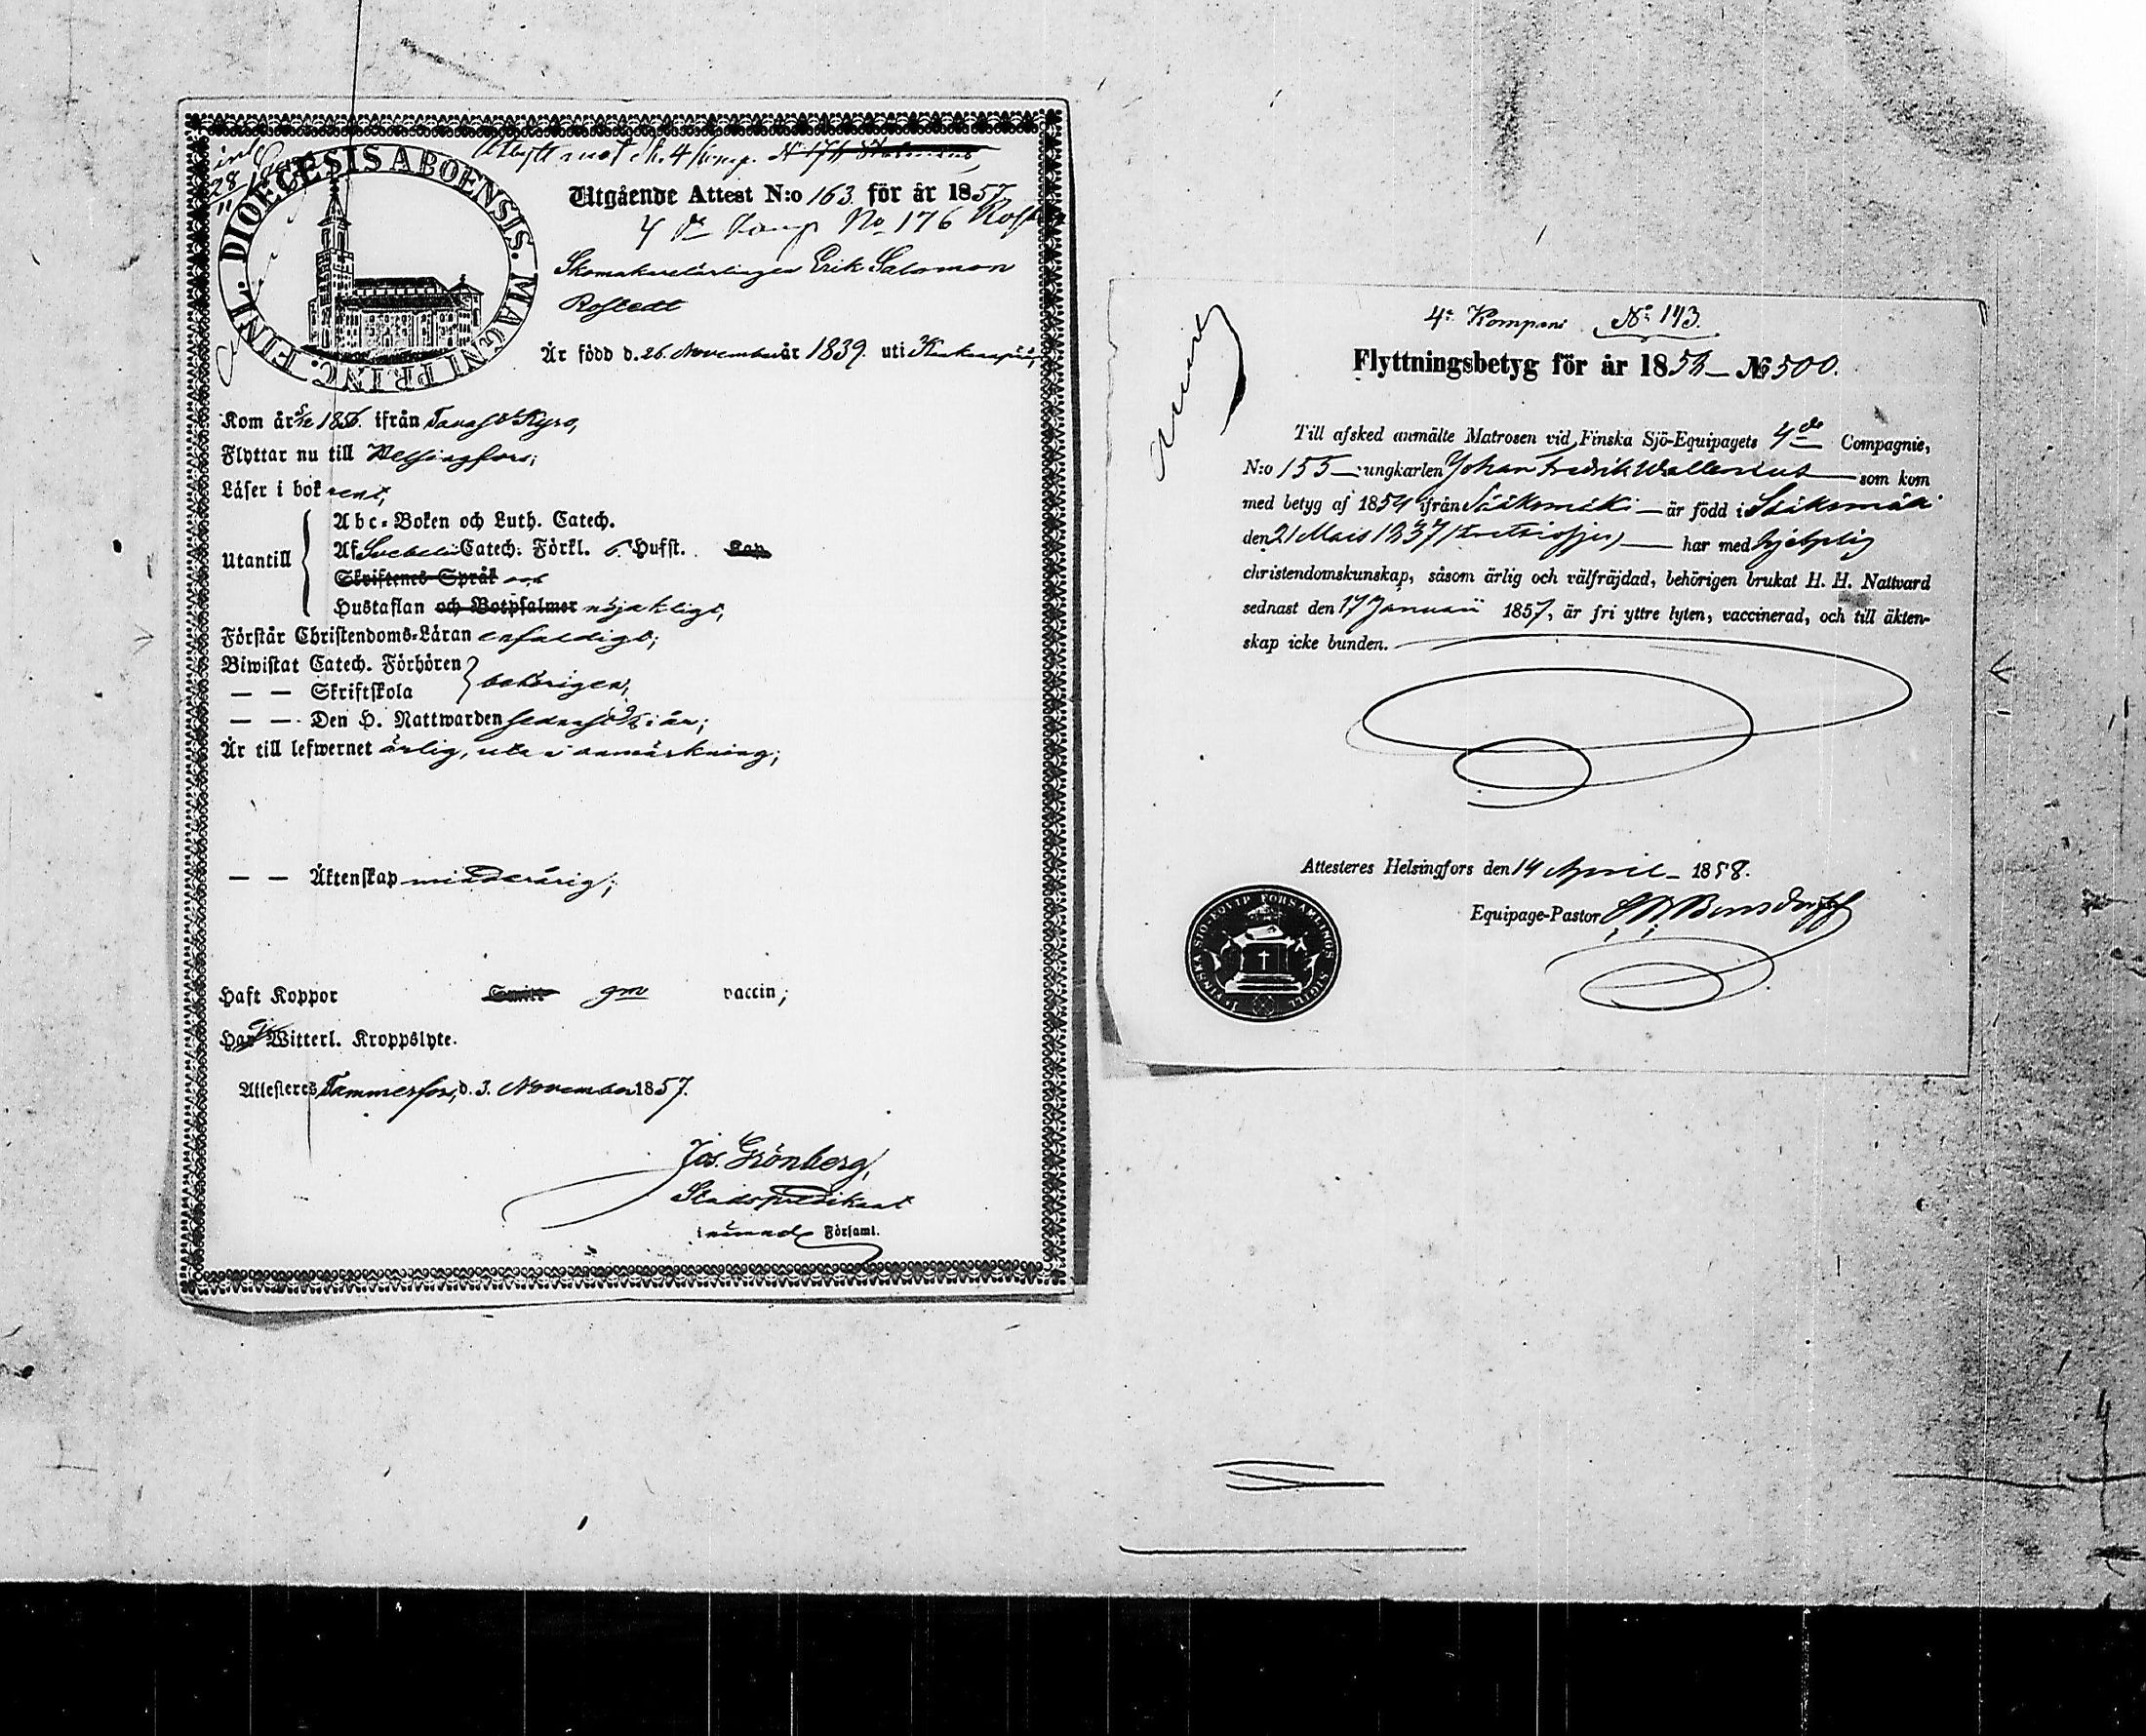 Utbytt mot 4 komp. N 174
DIOECESIS ABOENSIS. MAGNI PRINC. FINL.
28
Utgående Attest N:o 163. för år 1857.
4 de komp No 176
Skomakarelärlingen Erik Salomon
Rostedt
Är född d. 26. November år 1839. uti
Kom år 1856. ifrån Tavast Kyro,
Flyttar nu till Helsingfors;
Läser i bok rent,
Utantill
Abc-Boken och Luth. Catech.
Af Svebelii Catech. Förkl. 6. Hufst. Kap
Skriftenes Språk och
Hustaflan och Botpsalmer nöjaktigt,
Förstår Christendoms-Läran enfaldigt;
Biwistat Catech. Förhören
— — Skriftskola behörigen;
— — Den H. Nattwarden sednast i år;
Är till lefwernet ärlig, utan anmärkning;
— — Äktenskap minderårig;
Haft Koppor gm vaccin;
Har ej Witterl. Kroppslyte.
Attesteres Tammerfors, d. 3. November 1857.
Jos. Grönberg,
Stadspredikant
i nämnde Församl.
4e Kompani No 143.
Flyttningsbetyg för år 1858 — № 500.
Till afsked anmälte Matrosen vid Finska Sjö-Equipagets 4de Compagnie,
N:o 155 — ungkarlen Johan Fredrik Wallenius — som kom
med betyg af 1854 ifrån Sääksmäki — är född i Sääksmäki
den 21 Mars 1837 (trettiosju) — har med hjelplig
christendomskunskap, såsom ärlig och välfräjdad, behörigen brukat H. H. Nattvard
sednast den 17 Januarii 1857, är fri yttre lyten, vaccinerad, och till äkten-
skap icke bunden.
Attesteres Helsingfors den 14 April — 1858.
Equipage-Pastor
FINSKA SJÖ-EQVIP FÖRSAMLINGS SIGILL